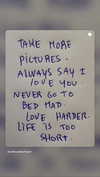 TAKE MORE
PICTURES.
ALWAYS SAY I
LOVE YOU
NEVER GO TO
BED MAD.
LOVE HARDER.
LIFE IS TOO
SHORT.